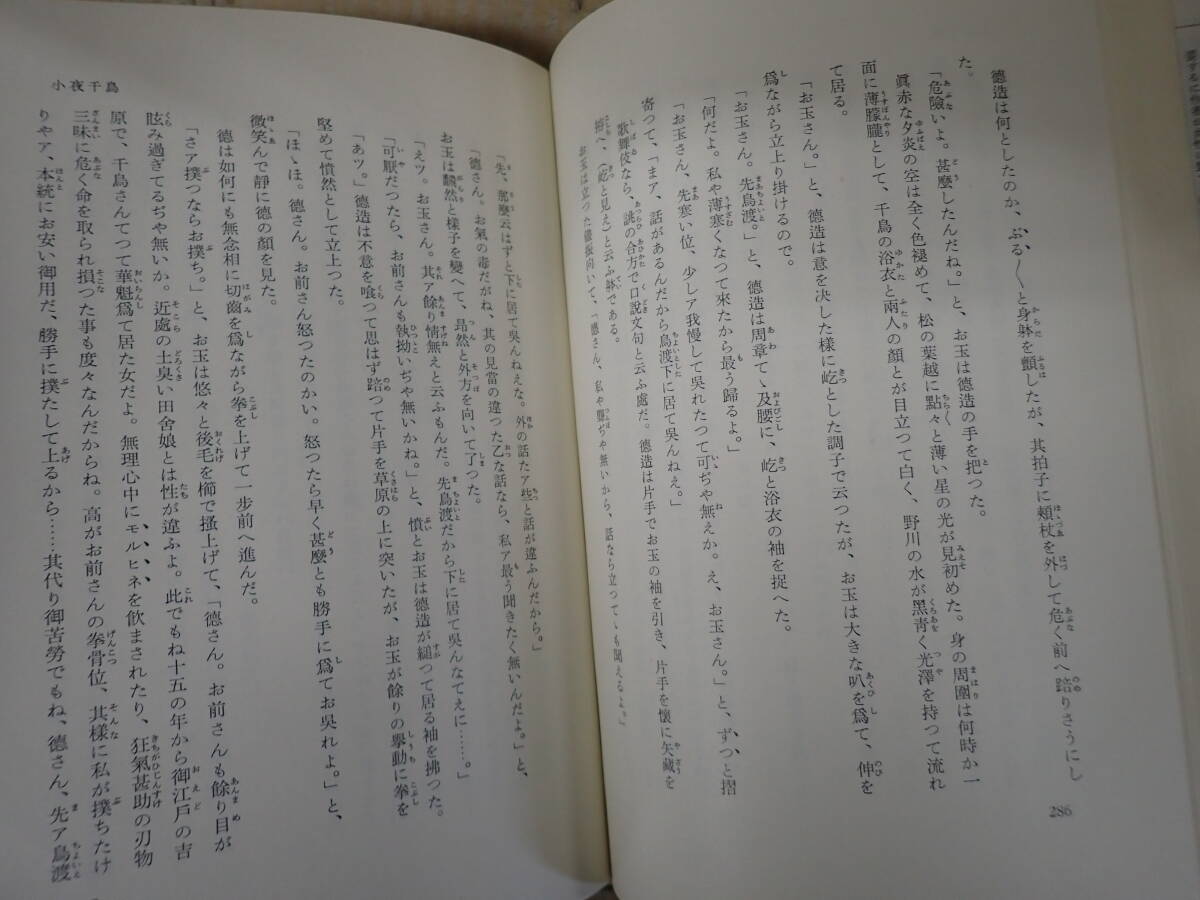 德造は何としたのか、ぶる〱と身躰を顫したが、其拍子に頬杖を外して危く前へ踣りさうにし
た。
「危險いよ。甚麼したんだね。」と、お玉は德造の手を把つた。
眞赤な夕炎の空は全く色褪めて、松の葉越に點々と薄い星の光が見初めた。身の周圍は何時か一
面に薄朦朧として、千鳥の浴衣と兩人の顏とが目立つて白く、野川の水が黑靑く光澤を持つて流れ
て居る。
「お玉さん。」と、德造は意を決した樣に屹とした調子で云つたが、お玉は大きな叺を爲て、伸を
爲ながら立上り掛けるので。
「お玉さん。先鳥渡。」と、德造は周章てゝ及腰に、屹と浴衣の袖を捉へた。
「何だよ。私や薄寒くなつて來たから最う歸るよ。」
「お玉さん、先寒い位、少しア我慢して吳れたつて可ぢや無えか。え、お玉さん。」と、ずつと摺
寄つて、「まア、話があるんだから鳥渡下に居て吳んねえ。」
歌舞伎なら、誂の合方で口說文句と云ふ處だ。德造は片手でお玉の袖を引き、片手を懷に矢藏を
拵へ、（屹と見え）と云ふ躰である。
お玉は立つた儘振向いて、「德さん、私や聾ぢや無いから、話なら立つてゝも聞えるよ。」
286
小夜千鳥
「先、那麼云はずと下に居て吳んねえな。外の話たア些と話が違ふんだから。」
「德さん。お氣の毒だがね、其の見當の違つた乙な話なら、私ア最う聞きたく無いんだよ。」と、
お玉は飜然と樣子を變へて、昻然と外方を向いて了つた。
「えツ。お玉さん。其ア餘り情無えと云ふもんだ。先鳥渡だから下に居て吳んなてえに……。」
「可厭だつたら、お前さんも執拗いぢや無いかね。」と、憤とお玉は德造が縋つて居る袖を拂つた。
「あツ。」德造は不意を喰つて思はず踣つて片手を草原の上に突いたが、お玉が餘りの擧動に拳を
堅めて憤然として立上つた。
「ほゝほ。德さん。お前さん怒つたのかい。怒つたら早く甚麼とも勝手に爲てお吳れよ。」と、
微笑んで靜に德の顏を見た。
德は如何にも無念相に切齒を爲ながら拳を上げて一步前へ進んだ。
「さア撲つならお撲ち。」と、お玉は悠々と後毛を櫛で搔上げて、「德さん。お前さんも餘り目が
眩み過ぎてるぢや無いか。近處の土臭い田舍娘とは性が違ふよ。此でもね十五の年から御江戶の吉
原で、千鳥さんてつて華魁爲て居た女だよ。無理心中にモルヒネを飲まされたり、狂氣甚助の刃物
三昧に危く命を取られ損つた事も度々なんだからね。高がお前さんの拳骨位、其樣に私が撲ちたけ
りやア、本統にお安い御用だ、勝手に撲たして上るから……其代り御苦勞でもね、德さん、先ア鳥渡